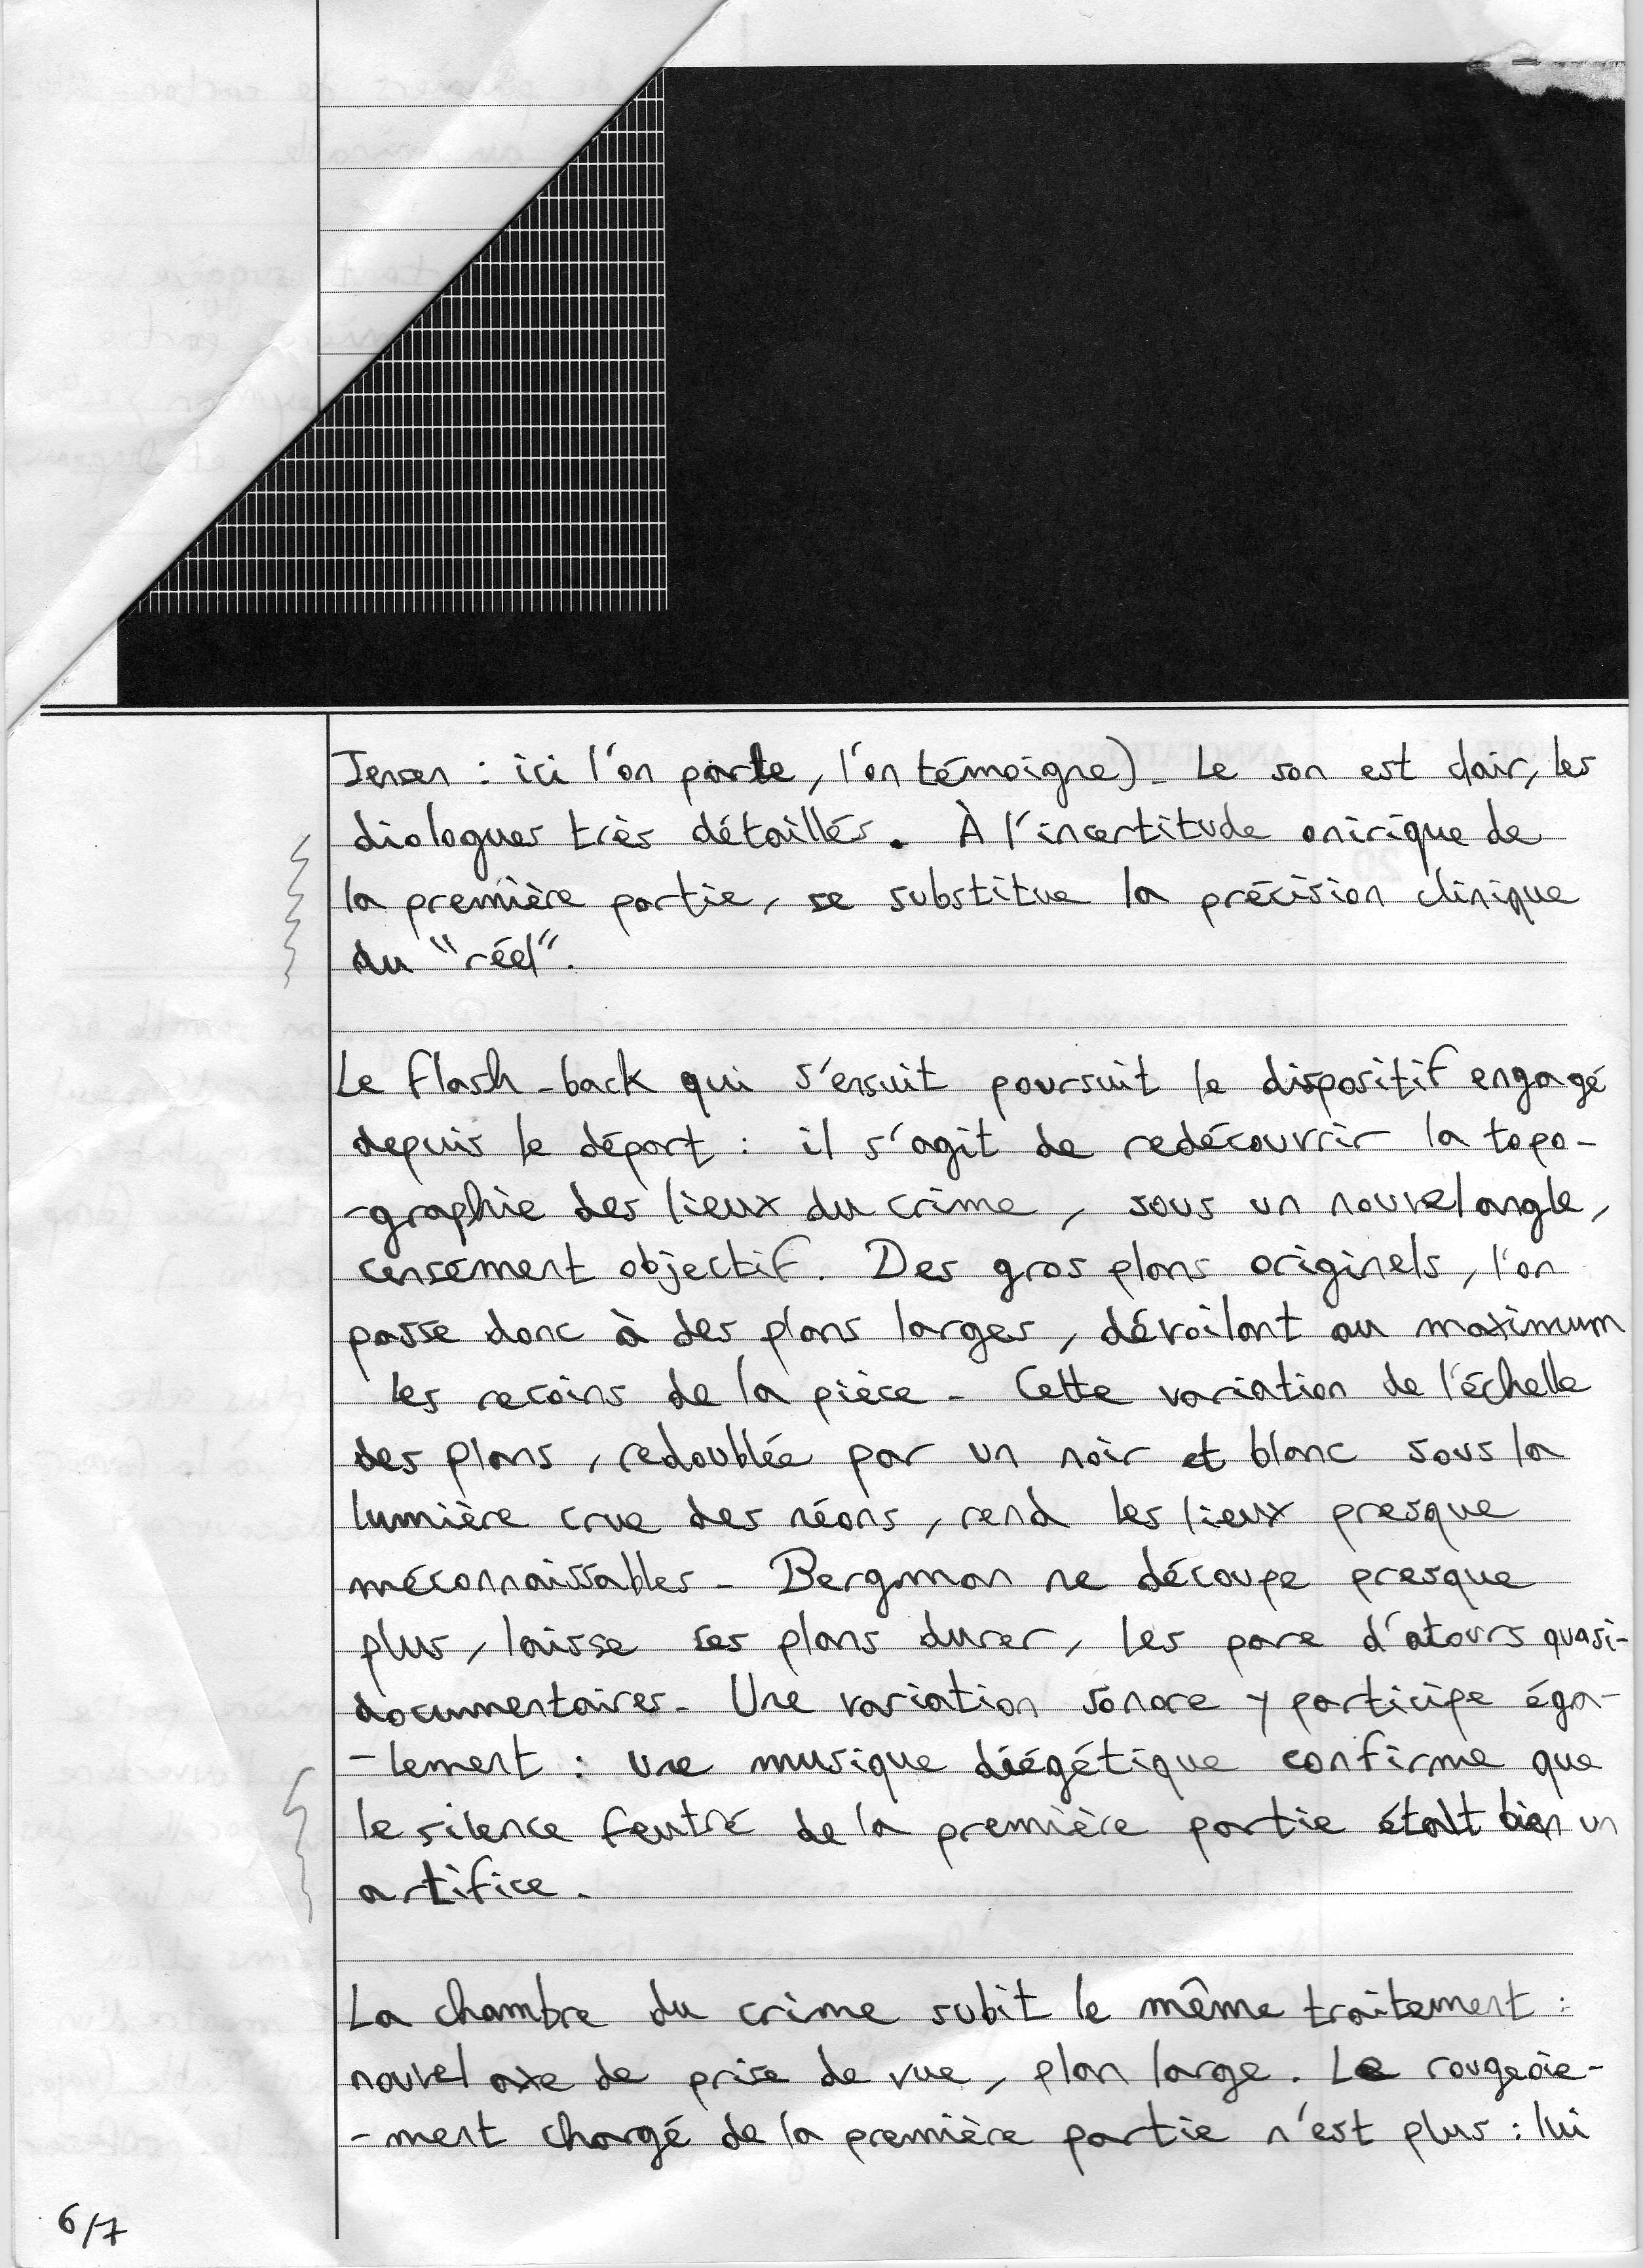 Jensen : ici l'on parle, l'on témoigne). Le son est clair, les
dialogues très détaillés. À l'incertitude onirique de
la première partie, se substitue la précision clinique
du "réel".
Le flash-back qui s'ensuit poursuit le dispositif engagé
depuis le départ : il s'agit de redécouvrir la topo-
-graphie des lieux du crime, sous un nouvel angle,
censément objectif. Des gros plans originels, l'on
passe donc à des plans larges, dévoilant au maximum
les recoins de la pièce. Cette variation de l'échelle
des plans, redoublée par un noir et blanc sous la
lumière crue des néons, rend les lieux presque
méconnaissables. Bergman ne découpe presque
plus, laisse ses plans durer, les pare d'atours quasi-
documentaires. Une variation sonore y participe éga-
-lement : une musique diégétique confirme que
le silence feutré de la première partie était bien un
artifice.
La chambre du crime subit le même traitement :
nouvel axe de prise de vue, plan large. Le rougeoie-
-ment chargé de la première partie n'est plus : lui
6/7